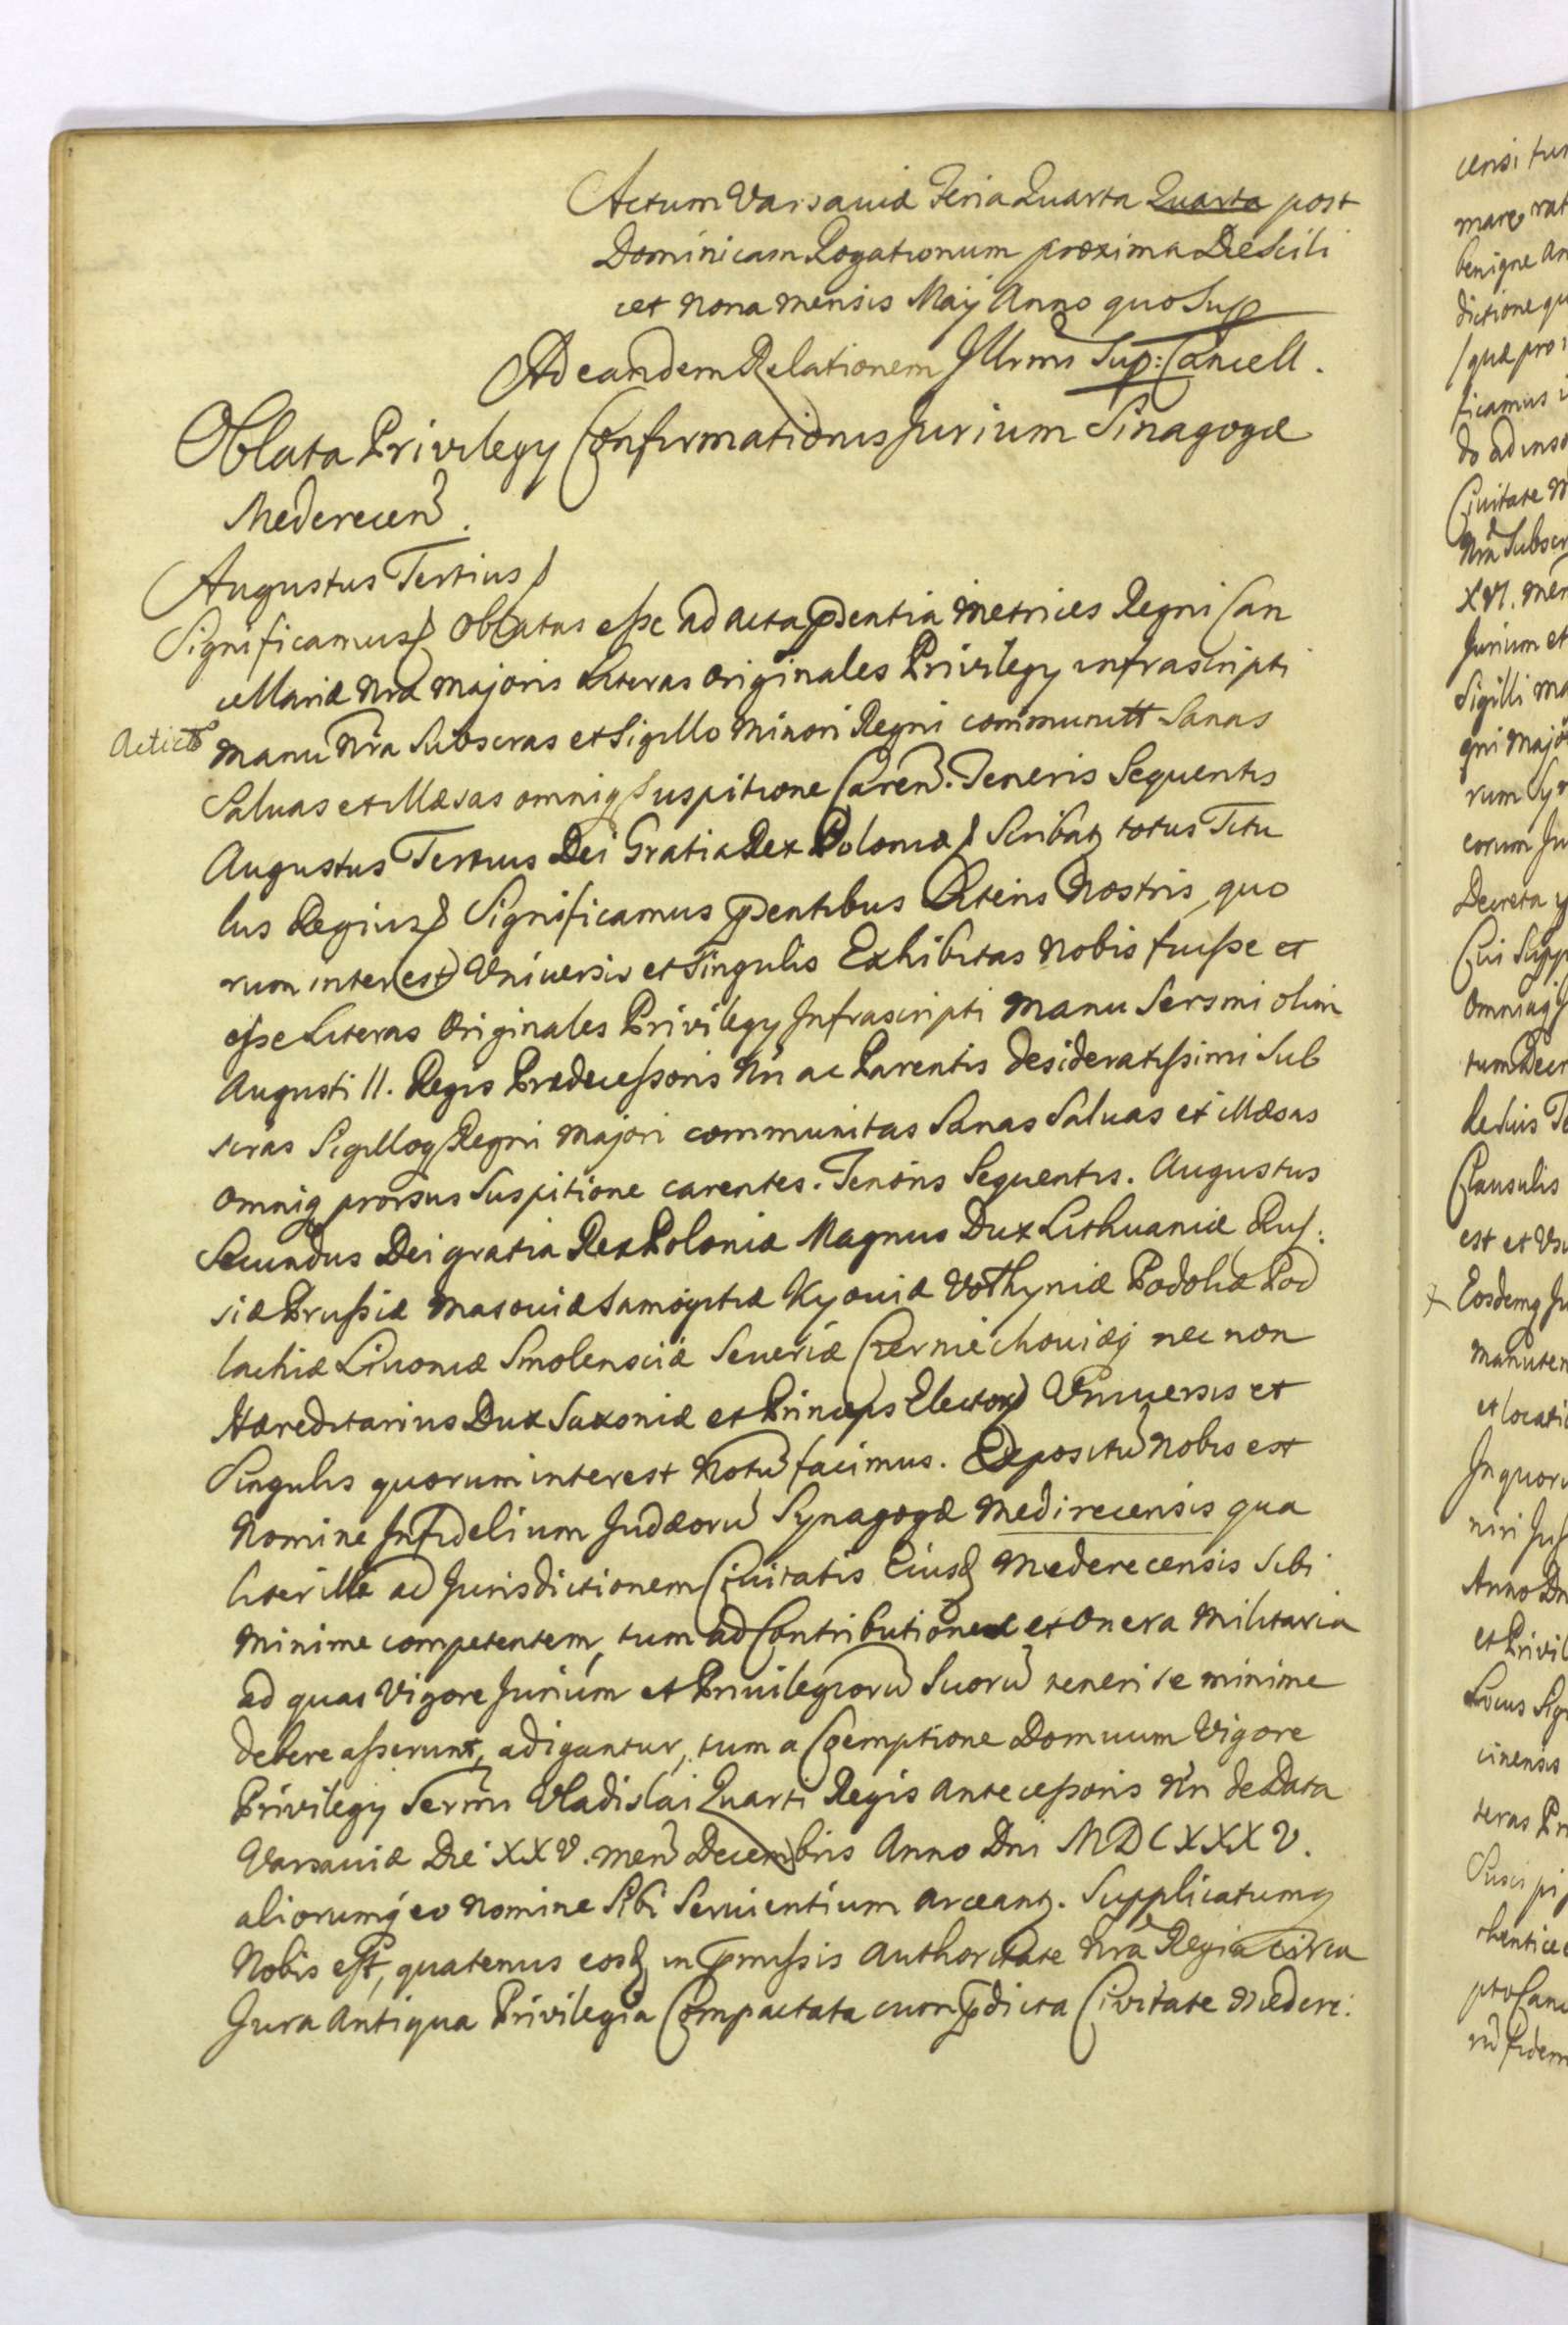 Actum Varsaviæ Feria Quarta Quarta post
Dominicam Rogationum proxima Die Scili
cet nona mensis Maÿ Anno quo Sup
Ad eandem Relationem Illrmi Sup: Cancell.
Oblata Privilegy Confirmationis Jurium Sinagogæ
Mederecen.
Augustus Tertius
Significamus Oblatas esse ad acta pñtia Metrices Regni Can
cellariæ Nræ Majoris Literas Originales Privilegy infrascripti
Manu Nra Subscras et Sigillo Minori Regni communitt Sanas
Salvas et illæsas omniq Suspitione Caren. Tenoris Sequentis
Augustus Tertius Dei Gratia Rex Poloniæ Scribat totus Titu
lus Regius Significamus pñtibus Literis Nostris, quo
rum interest Universis et Singulis Exhibitas Nobis fuisse et
esse Literas Originales Privilegy Infrascripti Manu Sersmi olim
Augusti II. Regis Prædecessoris Nri ac Parentis desideratissimi Sub
scras Sigilloq Regni Majori communitas Sanas Salvas et illæsas
omniq prorsus Suspitione carentes. Tenoris Sequentis. Augustus
Secundus Dei gratia Rex Poloniæ Magnus Dux Lithuaniæ Rus:
siæ Prussiæ Masoviæ Samogitiæ Kyoviæ Volhyniæ Podoliæ Pod
lachiæ Livoniæ Smolensciæ Severiæ Czerniechoviæq nec non
Hæreditarius Dux Saxoniæ et Princeps Elector Universis et
Singulis quorum interest Notu facimus. Expositu Nobis est
Nomine Infidelium Judæoru Synagogæ Medirecensis qua
liter illi ad Jurisdictionem Civitatis Eiusd Mederecensis Sibi
Minime competentem, tum ad Contributiones et Onera Militaria
ad quas Vigore Jurium et Privilegioru Suoru teneri se minime
debere asserunt, adigantur, tum a Coemptione Domuum Vigore
Privilegy Sermi Vladislai Quarti Regis Antecessoris Nri de Data
Varsaviæ Die XXV. men Decembris Anno Dni MDCXXXV.
aliorumq eo Nomine Sibi Servientium arceant. Supplicatumq
Nobis est, quatenus eosd in præmissis Authoritate Nra Regia circa
Jura Antiqua Privilegia Compactata cum pdicta Civitate Medere: